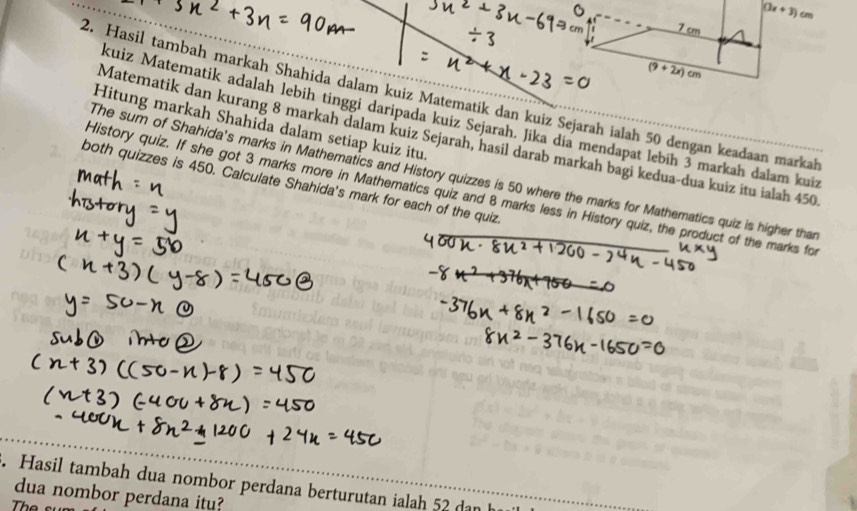 3x² + 3x = 90
3x² + 3x - 69 =
÷ 3
= x² + x - 23 = 0
cm
7 cm
(3x + 3) cm
(9 + 2x) cm
2. Hasil tambah markah Shahida dalam kuiz Matematik dan kuiz Sejarah ialah 50 dengan keadaan markah
kuiz Matematik adalah lebih tinggi daripada kuiz Sejarah. Jika dia mendapat lebih 3 markah dalam kuiz
Matematik dan kurang 8 markah dalam kuiz Sejarah, hasil darab markah bagi kedua-dua kuiz itu ialah 450.
Hitung markah Shahida dalam setiap kuiz itu.
The sum of Shahida's marks in Mathematics and History quizzes is 50 where the marks for Mathematics quiz is higher than
History quiz. If she got 3 marks more in Mathematics quiz and 8 marks less in History quiz, the product of the marks for
both quizzes is 450. Calculate Shahida's mark for each of the quiz.
math = x
history = y
x + y = 50
(x+3)(y-8) = 450 ②
y = 50-x ①
sub ① into ②
(x+3)((50-x)-8) = 450
(x+3)(-400+8x) = 450
-400x + 8x² - 1200 + 24x = 450
x × y
400x - 8x² + 1200 - 24x - 450
-8x² + 376x + 750 = 0
-376x + 8x² - 1650 = 0
8x² - 376x - 1650 = 0
. Hasil tambah dua nombor perdana berturutan ialah 52 dan
dua nombor perdana itu?
The